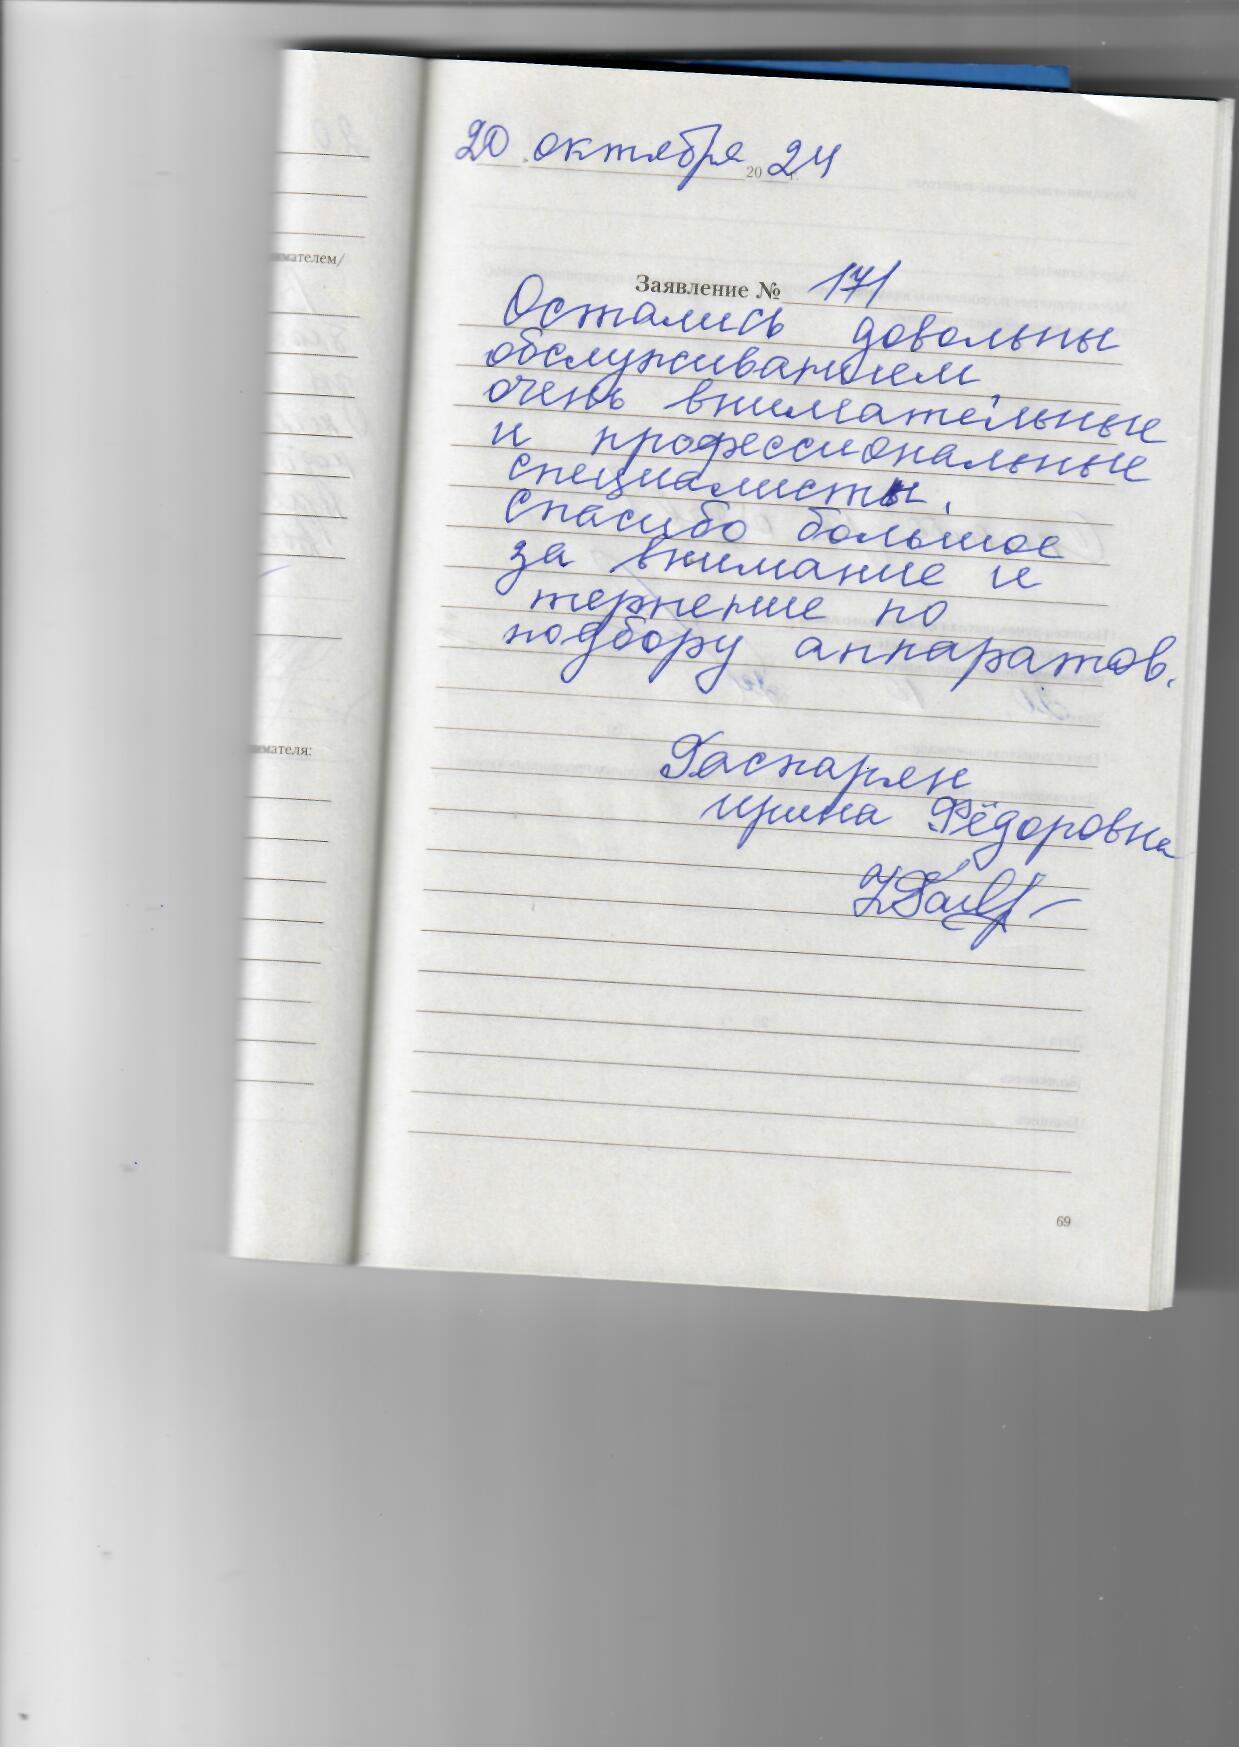 20 октября 2024 г.
имателем/
Заявление № 171
Остались довольны
обслуживанием,
очень внимательные
и профессиональные
специалисты.
Спасибо большое
за внимание и
терпение по
подбору аппаратов.
имателя:
Гаспарян
Ирина Фёдоровна
69